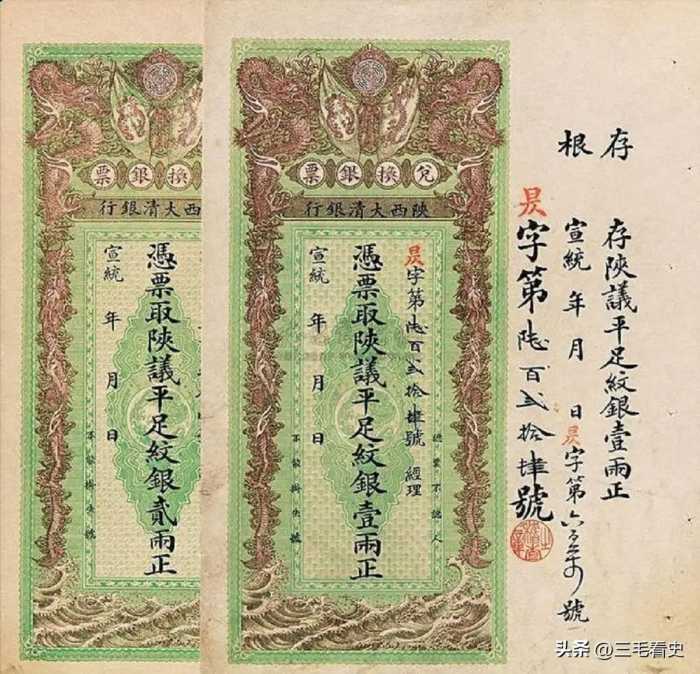 存根
存陝議平足紋銀壹兩正
宣統 年 月 日 昃字第六 號
昃字第陸百弍拾肆號
兌換銀票
陝西大清銀行
認票不認人
昃字第陸百弍拾肆號 經理
憑票取陝議平足紋銀壹兩正
宣統 年 月 日
不能掛失號
換銀票
西大清銀行
憑票取陝議平足紋銀貳兩正
宣統 年 月 日
不能掛失號
头条 @三毛看史